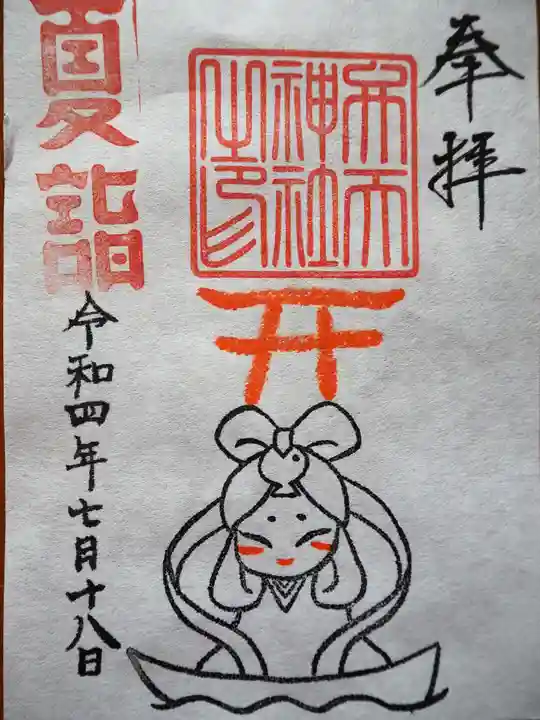 奉拝
弁天
神社
之印
夏詣
令和四年七月十八日